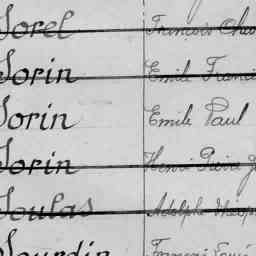 Sorel François
Sorin Emile
Sorin Emile Paul
Sorin Henri
Soulas Adolphe
Sourdin François